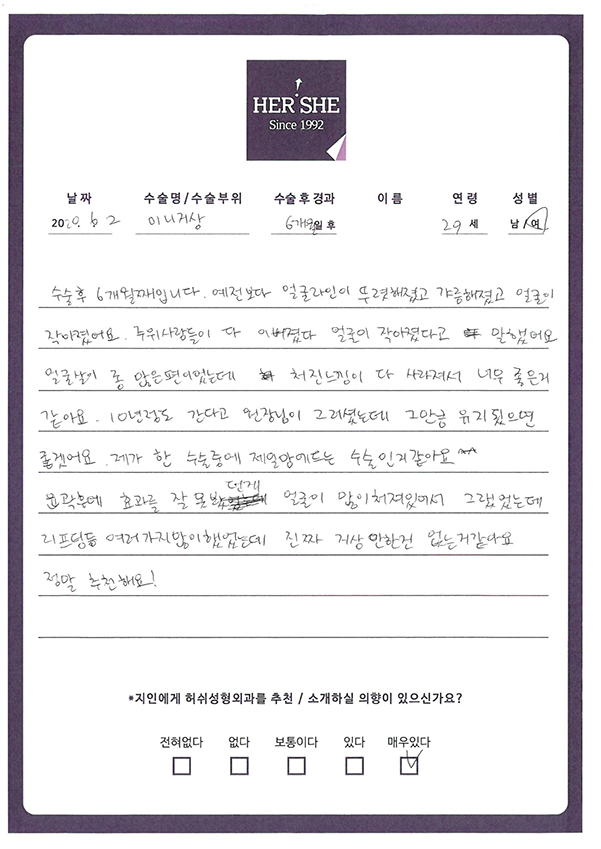 HER SHE
Since 1992
날 짜 수술명 / 수술부위 수술 후 경과 이 름 연 령 성 별
2020. 6. 2 미니거상 6개월일 후 29 세 남 / 여
수술후 6개월째입니다. 예전보다 얼굴라인이 뚜렷해졌고 갸름해졌고 얼굴이
작아졌어요. 주위사람들이 다 이뻐졌다 얼굴이 작아졌다고 말했어요
얼굴살이 좀 많은편이었는데 처진느낌이 다 사라져서 너무 좋은거
같아요. 10년정도 간다고 원장님이 그러셨는데 그만큼 유지됬으면
좋겠어요. 제가 한 수술중에 제일맘에드는 수술인거같아요 ^^
윤곽후에 효과를 잘 못봤던게 얼굴이 많이처져있어서 그랬었는데
리프팅등 여러가지많이했었는데 진짜 거상만한건 없는거같아요
정말 추천해요!
*지인에게 허쉬성형외과를 추천 / 소개하실 의향이 있으신가요?
전혀없다 없다 보통이다 있다 매우있다